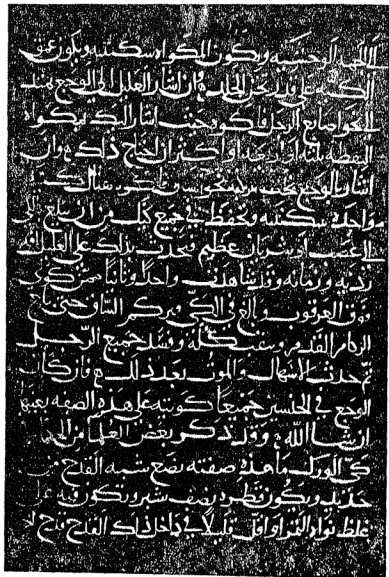 إلى الجهة الوحشية ويكون المكواة سكينية ويكون عمق
الكية على قدر ثخن الجلد فإن أشار العليل إلى الوجع عند
نحو أصابع الرجل فاكوه حيث أشار إليك بمكواة
النقطة ثلثة أو أربعة أو أكثر إن احتاج ذلك وإن
أشار بالوجع تحت نحو فاكوه هناك كية
واحدة سكينية وتحفظ في جميع كيك من أن تبلغ بالكي
إلى العصب أو شريان عظيم فتحدث بذلك على العليل آفة
ردية وزمانة وقد شاهدت واحدا وثانيا ممن كوى
فوق العرقوب وبالغ في الكي فتورم الساق حتى بلغ
الورم القدم وتثقب كله وفسد جميع الرجل
ثم حدث الإسهال والموت بعد ذلك فإن كان
الوجع في الجنبين جميعا كويته على هذه الصفة بعينها
إن شاء الله وقد ذكر بعض العلما من الحكما
كي الورك ما هذه صفته تصنع شبه القدح من
حديد ويكون قطره نصف شبر وتكون فيه على
غلظ نواة التمر أو أقل قليلا في داخل ذلك القدح قدح